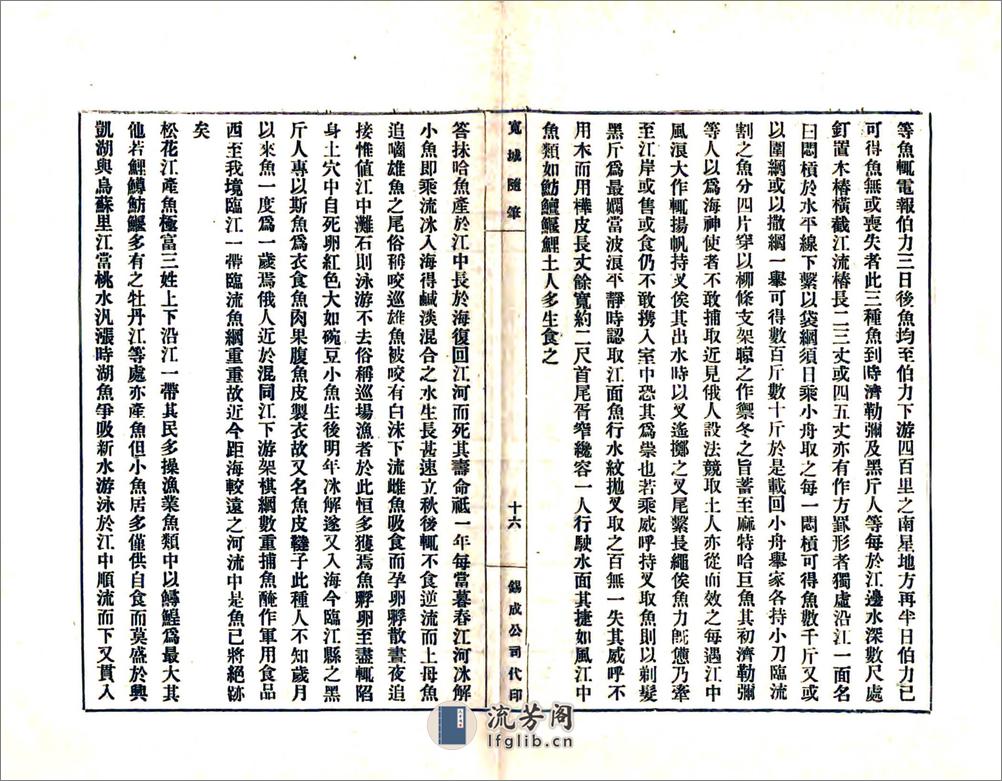 等魚輒電報伯力三日後魚均至伯力下游四百里之南星地方再半日伯力已
可得魚無或喪失者此三種魚到時濟勒彌及黑斤人等每於江邊水深數尺處
釘置木樁橫截江流樁長二三丈或四五丈亦有作方罫形者獨虛沿江一面名
曰悶槓於水平線下繫以袋網須日乘小舟取之每一悶槓可得魚數千斤又或
以圍網或以撒網一舉可得數百斤數十斤於是載回小舟舉家各持小刀臨流
割之魚分四片穿以柳條支架晾之作禦冬之旨蓄至麻特哈巨魚其初濟勒彌
等人以爲海神使者不敢捕取近見俄人設法競取土人亦從而效之每遇江中
風浪大作輒揚帆持叉俟其出水時以叉遙擲之叉尾繫長繩俟魚力旣憊乃牽
至江岸或售或食仍不敢携入室中恐其爲祟也若乘威呼持叉取魚則以剃髮
黑斤爲最嫺當波浪平靜時認取江面魚行水紋拋叉取之百無一失其威呼不
用木而用樺皮長丈餘寬約二尺首尾胥窄纔容一人行駛水面其捷如風江中
魚類如魴鱣鰋鯉土人多生食之
寬城隨筆
十六
錫成公司代印
答抹哈魚產於江中長於海復回江河而死其壽命祗一年每當暮春江河冰解
小魚即乘流冰入海得鹹淡混合之水生長甚速立秋後輒不食逆流而上母魚
追嚙雄魚之尾俗稱咬巡雄魚被咬有白沫下流雌魚吸食而孕卵孵散晝夜追
接惟值江中灘石則泳游不去俗稱巡場漁者於此恒多獲焉魚孵卵至盡輒陷
身土穴中自死卵紅色大如碗豆小魚生後明年冰解遂又入海今臨江縣之黑
斤人專以斯魚爲衣食魚肉果腹魚皮製衣故又名魚皮韃子此種人不知歲月
以來魚一度爲一歲焉俄人近於混同江下游架棋網數重捕魚醃作軍用食品
西至我境臨江一帶臨流魚網重重故近今距海較遠之河流中是魚已將絕跡
矣
松花江產魚極富三姓上下沿江一帶其民多操漁業魚類中以鱘鰉爲最大其
他若鯉鱒魴鰋多有之牡丹江等處亦產魚但小魚居多僅供自食而莫盛於興
凱湖與烏蘇里江當桃水汎漲時湖魚爭吸新水游泳於江中順流而下又貫入
流芳阁
lfglib.cn